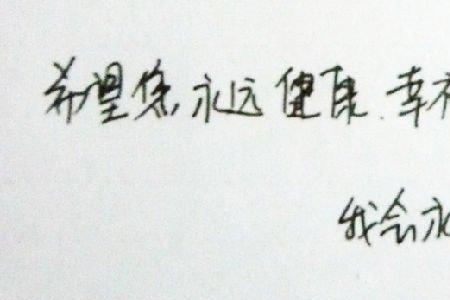 希望您永远健康.幸
我会永